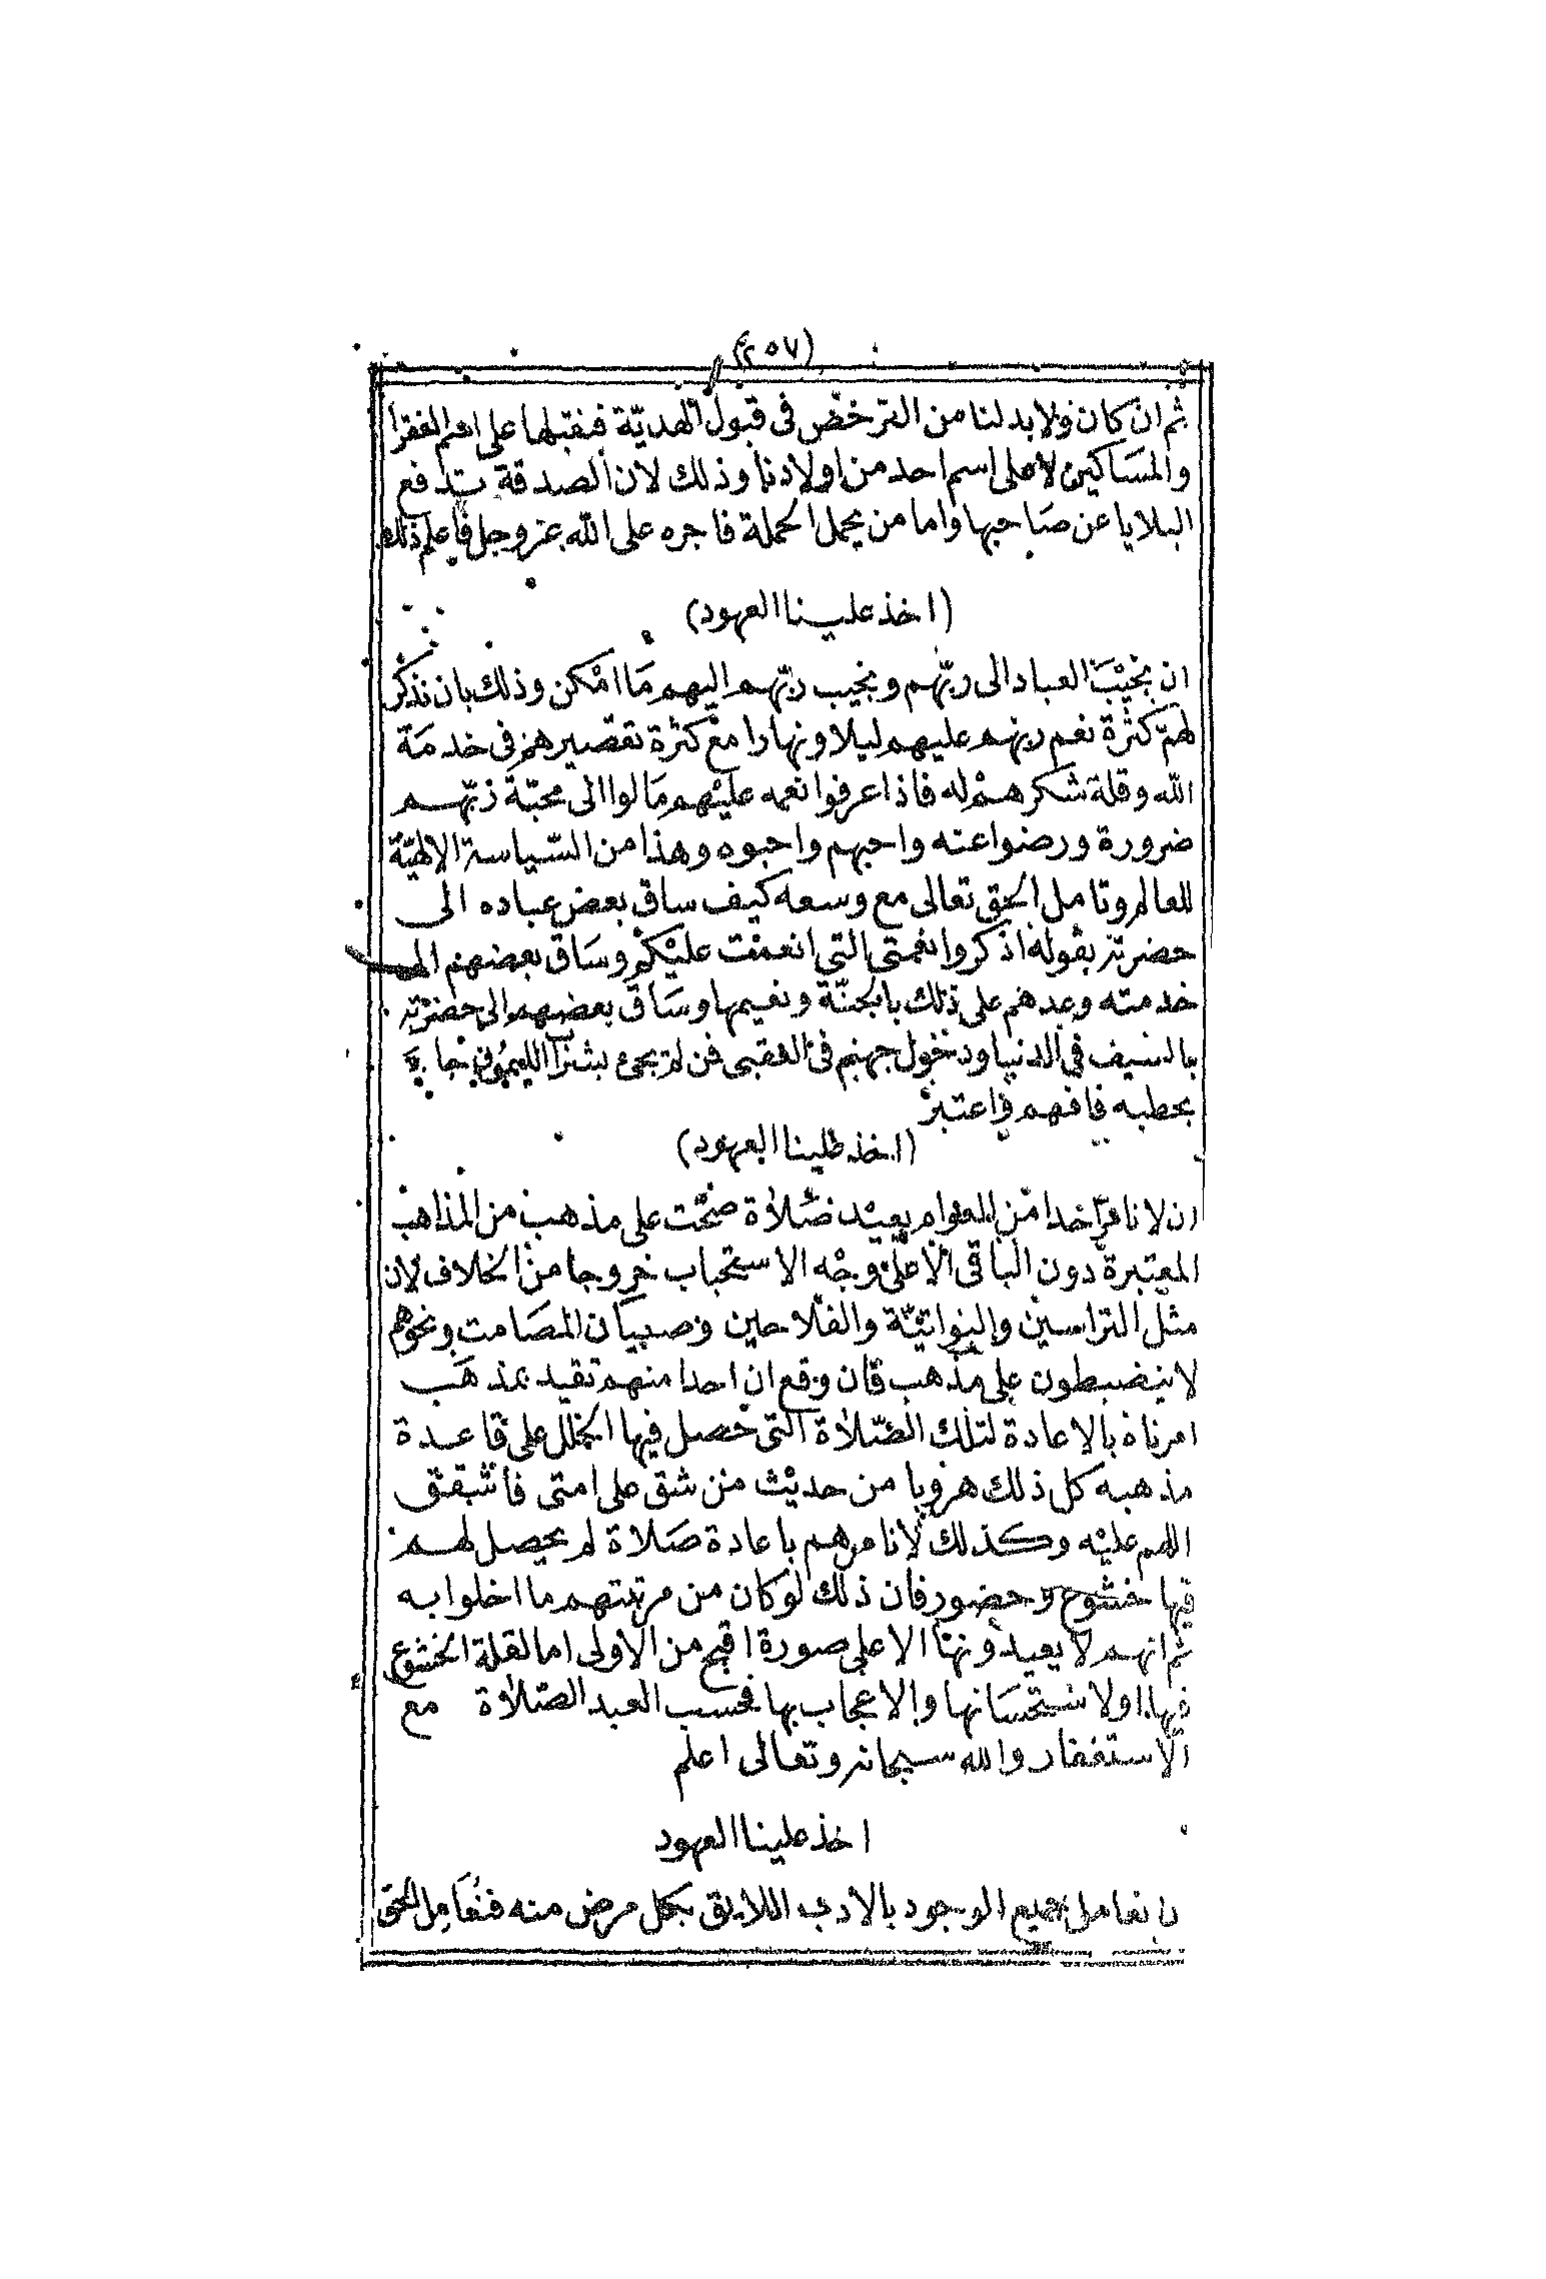 (٢٥٧)
ثم ان كان ولا بد لنا من الترخص فى قبول الهديّة فنقبلها على اسم الفقرا
والمساكين لا على اسم احد من اولادنا وذلك لان الصدقة تدفع
البلايا عن صاحبها واما من يحمل الحملة فاجره على الله عز وجل فاعلم ذلك
(اخذ علينا العهود)
ان نحبب العباد الى ربّهم ونحبب ربّهم اليهم ما امكن وذلك بان نذكر
لهم كثرة نعم ربهم عليهم ليلا ونهارا مع كثرة تقصيرهم فى خدمة
الله وقلة شكرهم له فاذا عرفوا نعمه عليهم مالوا الى محبّة ربّهم
ضرورة ورضوا عنه واحبهم واحبوه وهذا من السّياسة الالهيّة
للعالم وتامل الحق تعالى مع وسعه كيف ساق بعض عباده الى
حضرته بقوله اذكروا نعمتى التى انعمت عليكم وساق بعضهم الى
خدمته وعدهم على ذلك بالجنّة ونعيمها وساق بعضهم الى حضرته
بالسيف فى الدنيا ودخول جهنم فى العقبى فمن لم يجئ بشراب الليمون جا
بحطبه فافهم واعتبر
(اخذ علينا العهود)
ان لا نامر احدا من العوام يعيد صلاة صحّت على مذهب من المذاهب
المعتبرة دون الباقى الا على وجه الاستحباب خروجا من الخلاف لان
مثل التراسين والنواتيّة والفلاحين وصبيان المصامت ونحوهم
لا ينضبطون على مذهب فان وقع ان احدا منهم تقيد بمذهب
امرناه بالاعادة لتلك الصّلاة التى حصل فيها الخلل على قاعدة
مذهبه كل ذلك هروبا من حديث من شق على امتى فاشقق
اللهم عليه وكذلك لا نامرهم باعادة صلاة لم يحصل لهم
فيها خشوع وحضور فان ذلك لو كان من مرتبتهم ما اخلوا به
ثم انهم لا يعيدونها الا على صورة اقبح من الاولى اما لقلة الخشوع
فيها او لاستحسانها والاعجاب بها فحسب العبد الصّلاة مع
الاستغفار والله سبحانه وتعالى اعلم
اخذ علينا العهود
بان نعامل جميع الوجود بالادب اللايق بكل مرض منه فنعامل الحق